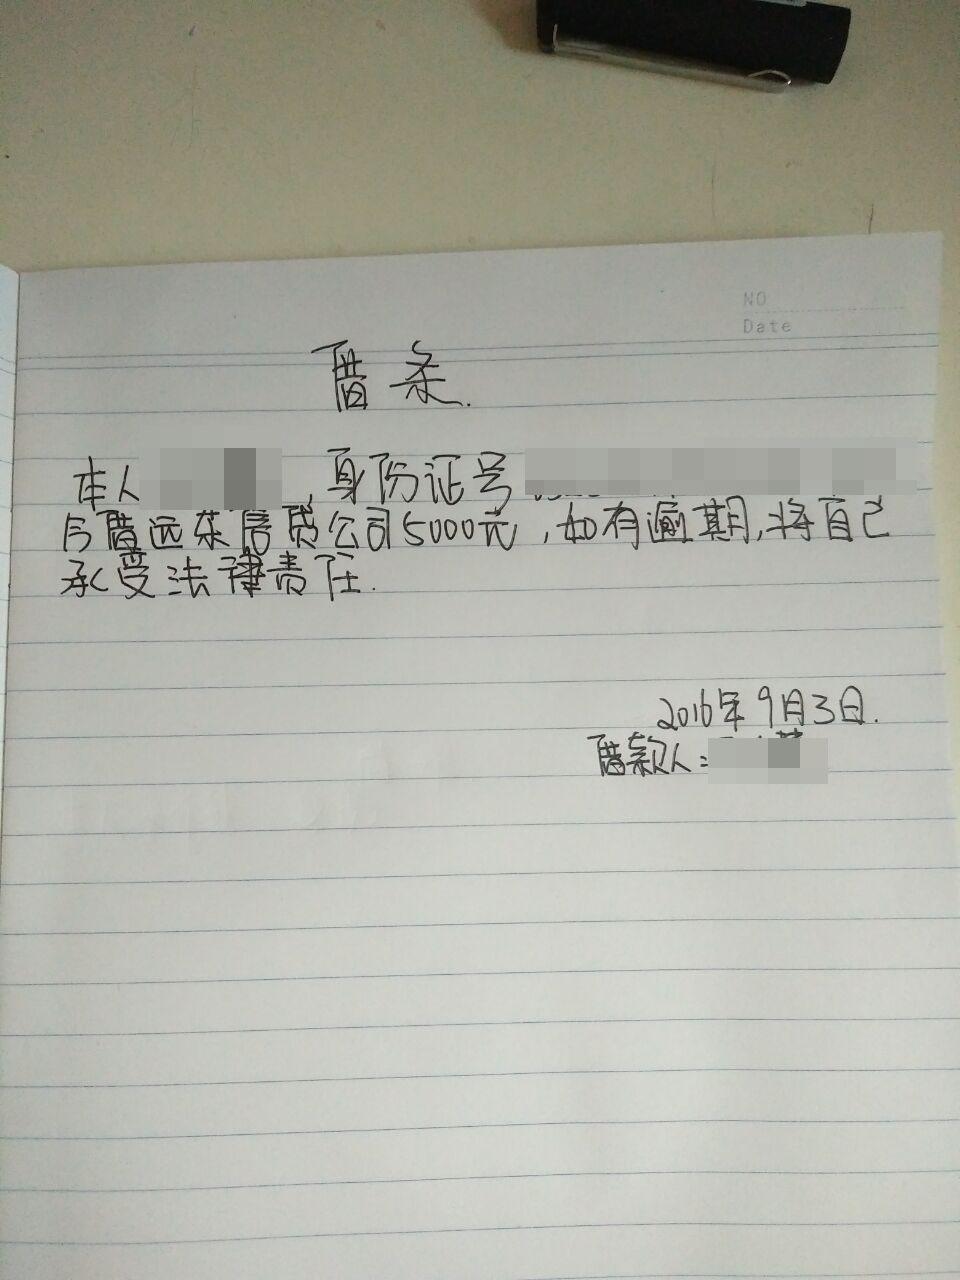 NO
Date
借条.
本人 , 身份证号
今借远东信贷公司5000元,如有逾期,将自己
承受法律责任.
2016年9月3日.
借款人: